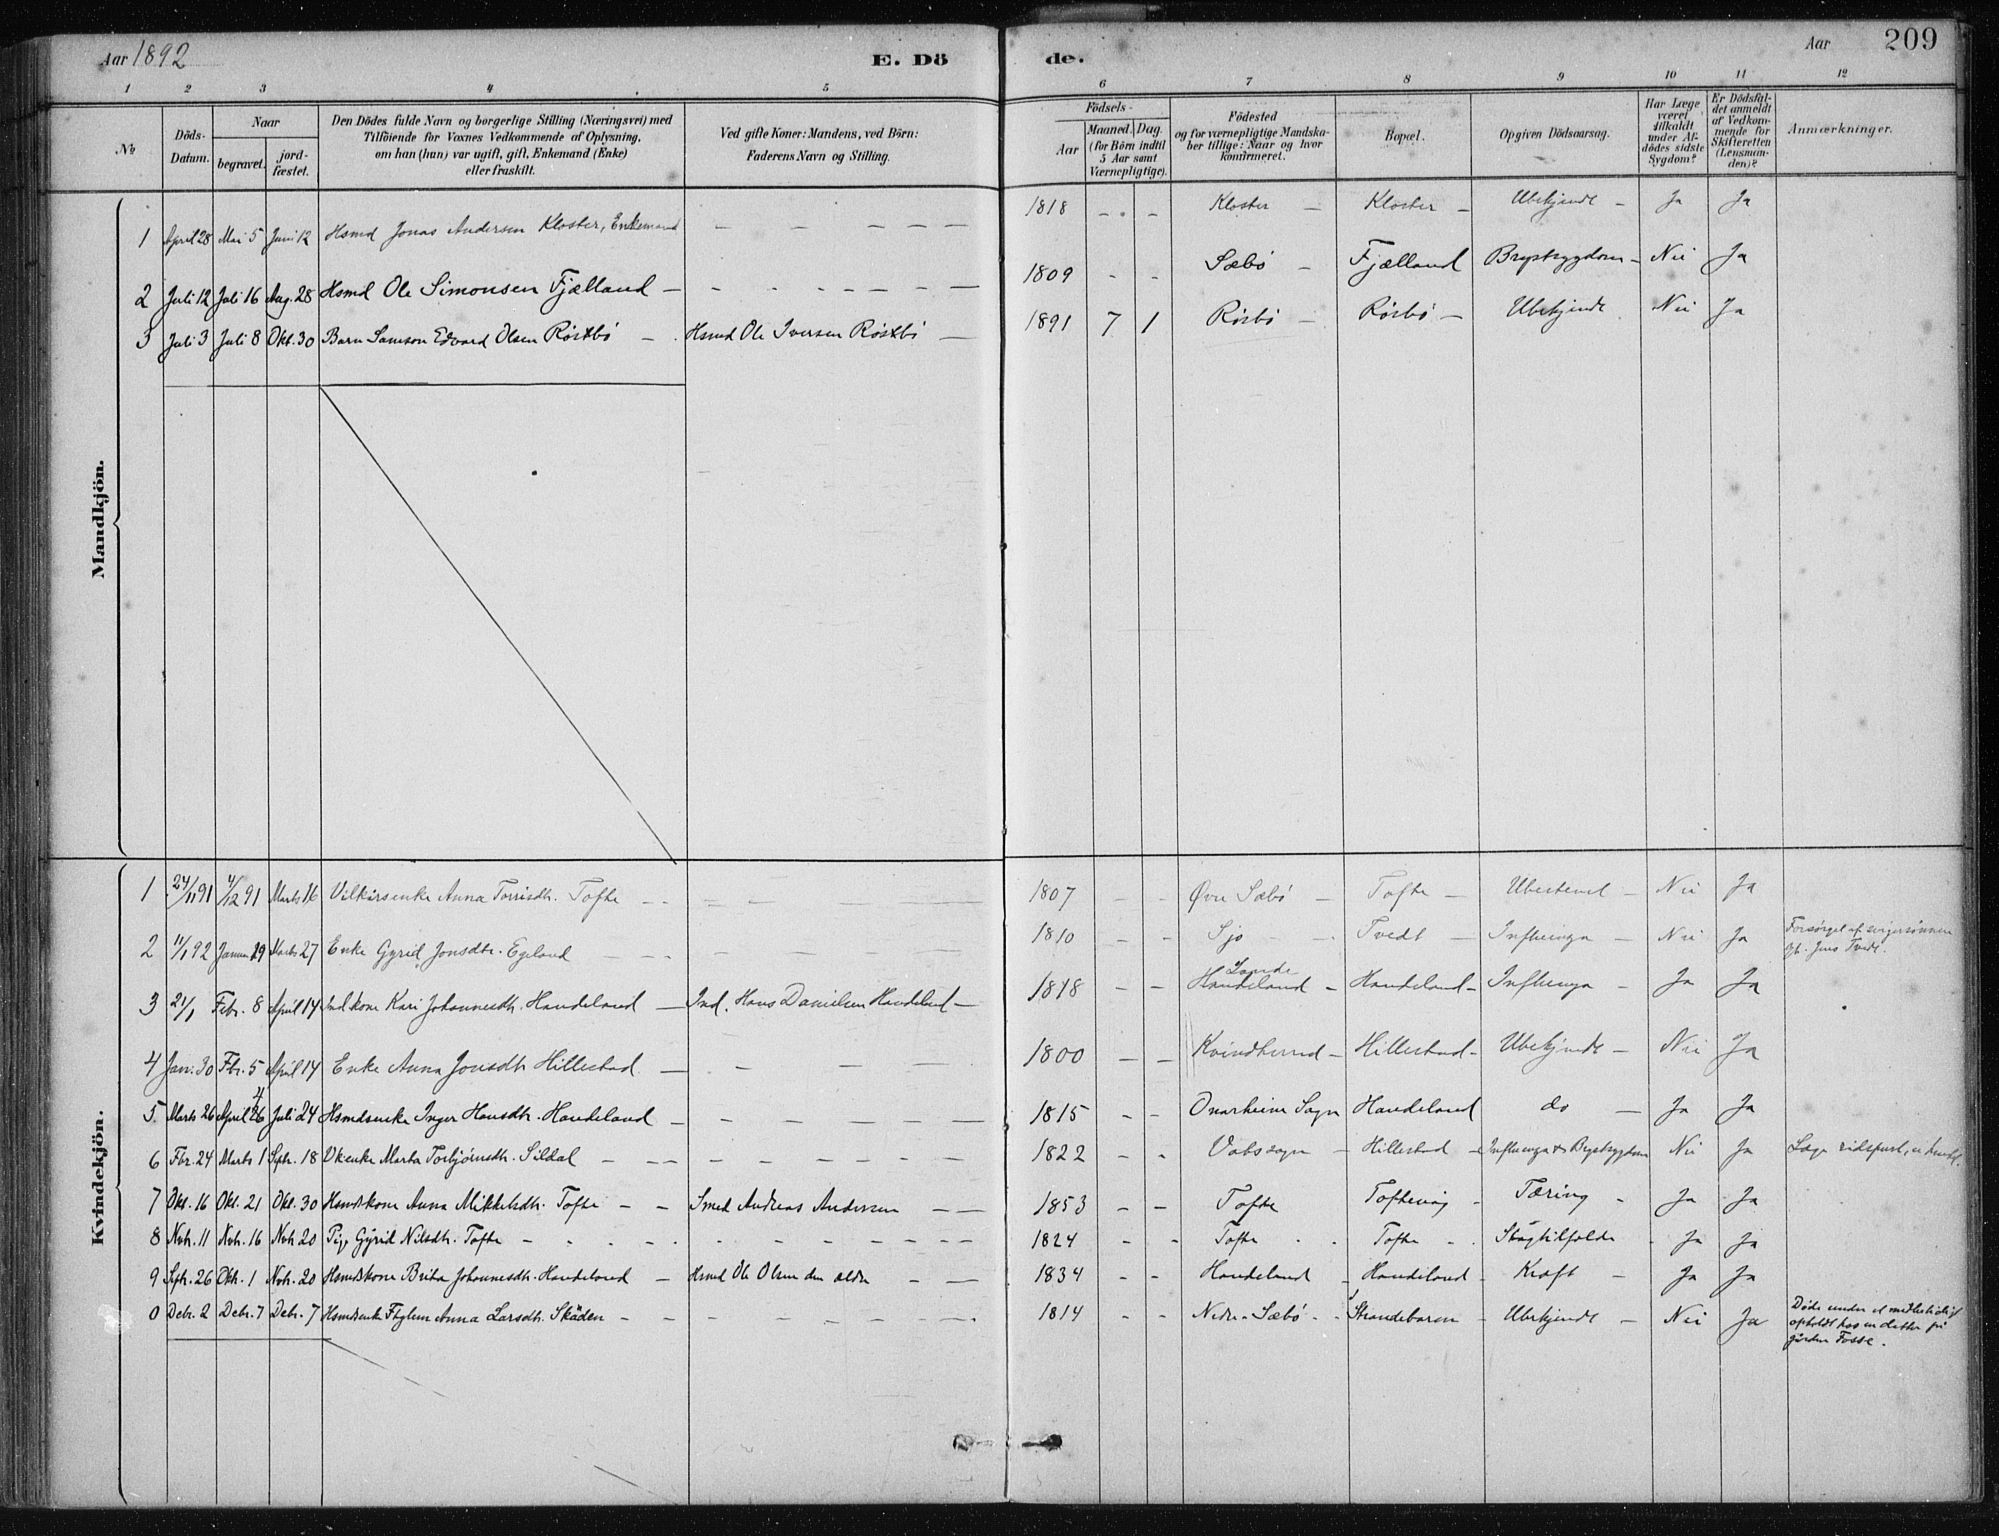 Aar 1892 E. Döde. Aar 209
1 2 3 4 5 6 7 8 9 10 11 12
№ Döds-Datum. Naar begravet. jord-fæstet. Den Dödes fulde Navn og borgerlige Stilling (Næringsvei) med Tilföiende for Voxnes Vedkommende af Oplysning, om han (hun) var ugift, gift, Enkemand (Enke) eller fraskilt. Ved gifte Koner: Mandens, ved Börn: Faderens Navn og Stilling. Födsels- Aar Maaned. Dag. (for Börn indtil 5 Aar samt Værnepligtige). Födested og for værnepligtige Mandskaber tillige: Naar og hvor konfirmeret. Bopæl. Opgiven Dödsaarsag. Har Læge været tilkaldt under Afdödes sidste Sygdom? Er Dödsfaldet anmeldt af Vedkommende for Skifteretten (Lensmanden)? Anmærkninger.
Mandkjön.
1 April 28 Mai 5 Juni 12 Hsmd Jonas Andersen Kloster, Enkemand — — — — — 1818 - - Kloster — Kloster — Ubekjendt — Ja Ja
2 Juli 12 Juli 16 Aug. 28 Hsmd Ole Simonsen Fjælland — - - - - - - 1809 - - Sæbö — Fjælland Brystsygdom — Nei Ja
3 Juli 3 Juli 8 Okt. 30 Barn Samson Edvard Olsen Röstbö — Hsmd Ole Iversen Röstbö — 1891 7 1 Rösbö — Rösbö — Ubekjendt. Nei Ja
Kvindekjön.
1 24/11 91 4/12 91 Marts 16 Vilkårsenke Anna Torrisdtr. Tofte — — — — — 1807 - - Øvre Sæbö — Tofte — Ubestemt — Nei Ja
2 11/1 92 Januar 19 Marts 27 Enke Gyrid Jonsdtr. Egeland — — — — — 1810 - - Sjo — Tvedt — Influenza — Nei Ja Forsörget af svigersönnen Jens Tvedt.
3 21/1 Febr. 8 April 14 Ind.kone Kari Johannesdtr. Handeland — Ind. Hans Danielsen Handeland — 1818 - - Sande Handeland — Handeland — Influenza — Ja Ja
4 Jan. 30 Fbr. 5 April 14 Enke Anna Jonsdtr Hillestad — — — — 1800 — — Kvindherred — Hillestad — Ubekjendt — Nei Ja
5. Marts 26 April 26 4 Juli 24 Hsmdsenke Inger Hansdtr. Handeland — — — — — 1815 - - Onarheim Sogn Handeland do — Ja Ja
6 Fbr. 24 Marts 1 Sptr. 18 Marta Torbjörnsdtr. Sildal — — — — — 1822 - - Vats sogn — Hillestad — Influenza & Brystsygdom Nei Ja Læge
7 Okt. 16 Okt. 21 Okt. 30 Hsmdskone Anna Mikkelsdtr. Tofte — — Smed Andreas Andersen — — 1853 - - Tofte Toftevåg — Tæring — Ja Ja
8 Nvbr. 11 Nvbr. 16 Nvbr 20 Pige Gyrid Nilsdtr. Tofte - - - - 1824 - - Tofte Tofte Slagtilfælde - Ja Ja
9 Sptr. 26 Oktr. 1 Nvbr. 20 Hsmdskone Brita Johannesdtr. Handeland — Hsmd Ole Olsen den ældre — — 1834 - - Handeland — Handeland — Kræft — Ja Ja
0 Debr. 2 Debr. 7 Debr. 7 Hsmdsenke Anna Larsdtr. Skåden — — — — — 1814 - - Nedre Sæbö - - Strandebarm — Ubekjendt — Nei Ja Döde under et midlertidigt ophold hos en datter på gården Fosse.